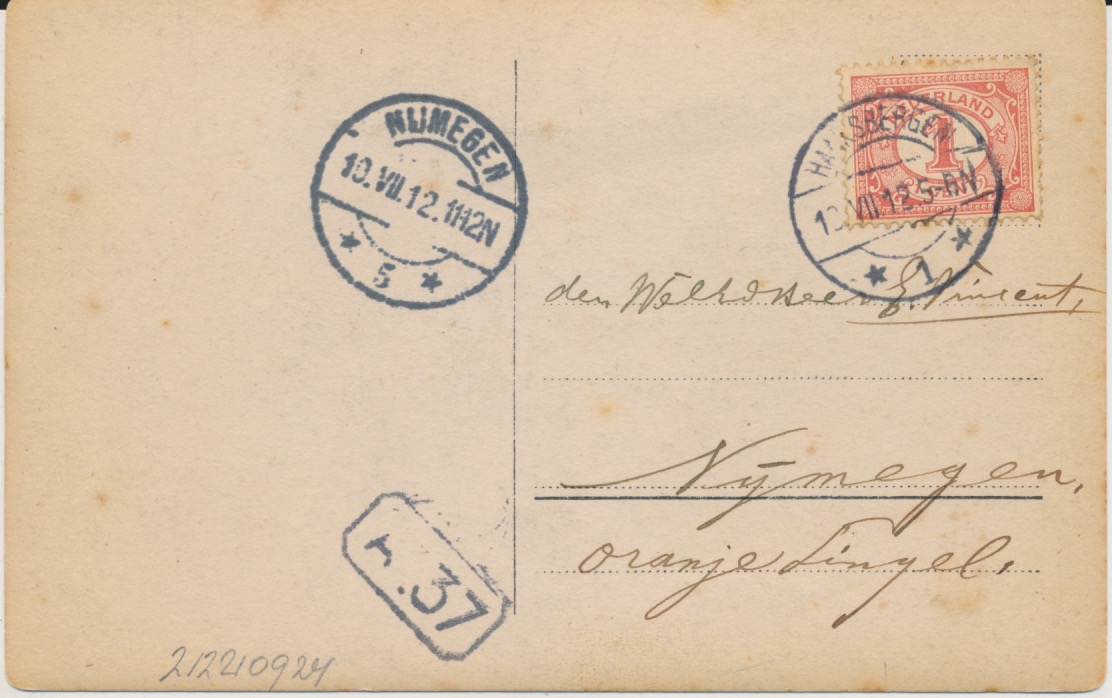 NIJMEGEN
10.VII.12.11-12N
5
NEDERLAND
1
HAAKSBERGEN
10.VII.12.5-6N
1
den WelEd Heer E. Vincent,
Nymegen,
oranje Singel.
r.37
212210924